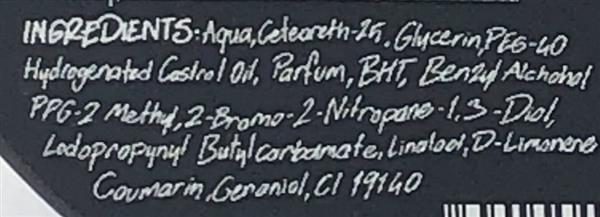 INGREDIENTS: Aqua, Ceteareth-25, Glycerin, PEG-40
Hydrogenated Castrol Oil, Parfum, BHT, Benzyl Alchohol
PPG-2 Methyl, 2-Bromo-2-Nitropane-1,3-Diol,
Lodopropynyl Butylcarbamate, Linalool, D-Limonene
Coumarin, Geraniol, CI 19140